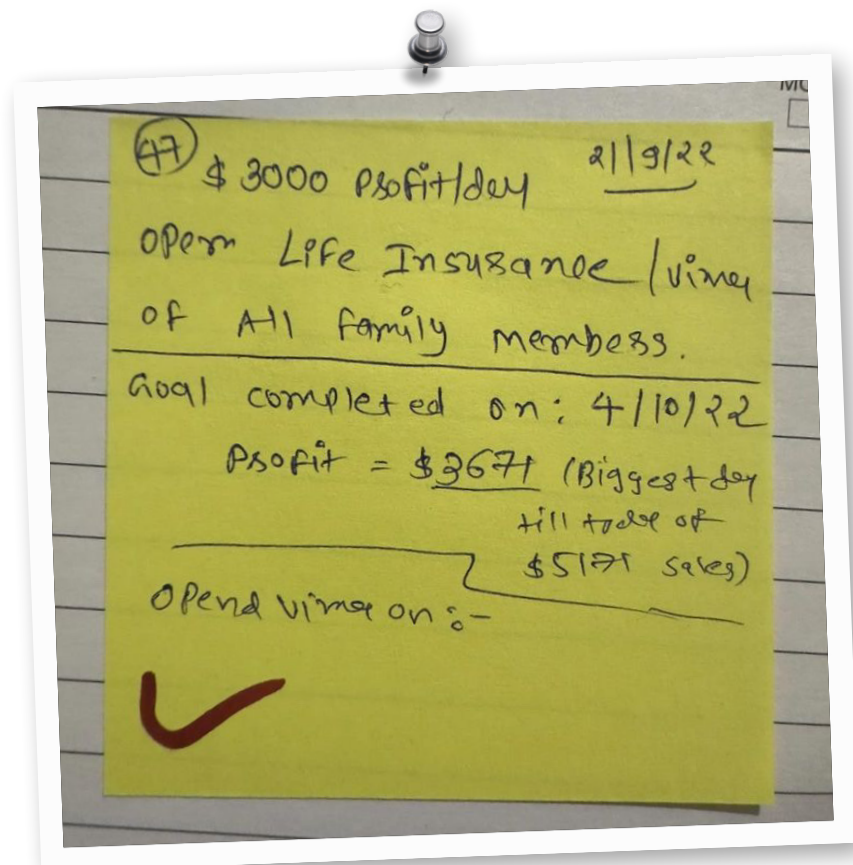 47 $ 3000 Profit/day 21/9/22
open Life Insurance / vima
of All family members.
Goal completed on : 4/10/22
Profit = $3671 (Biggest day
till today of
$5171 sales)
opend vima on :-